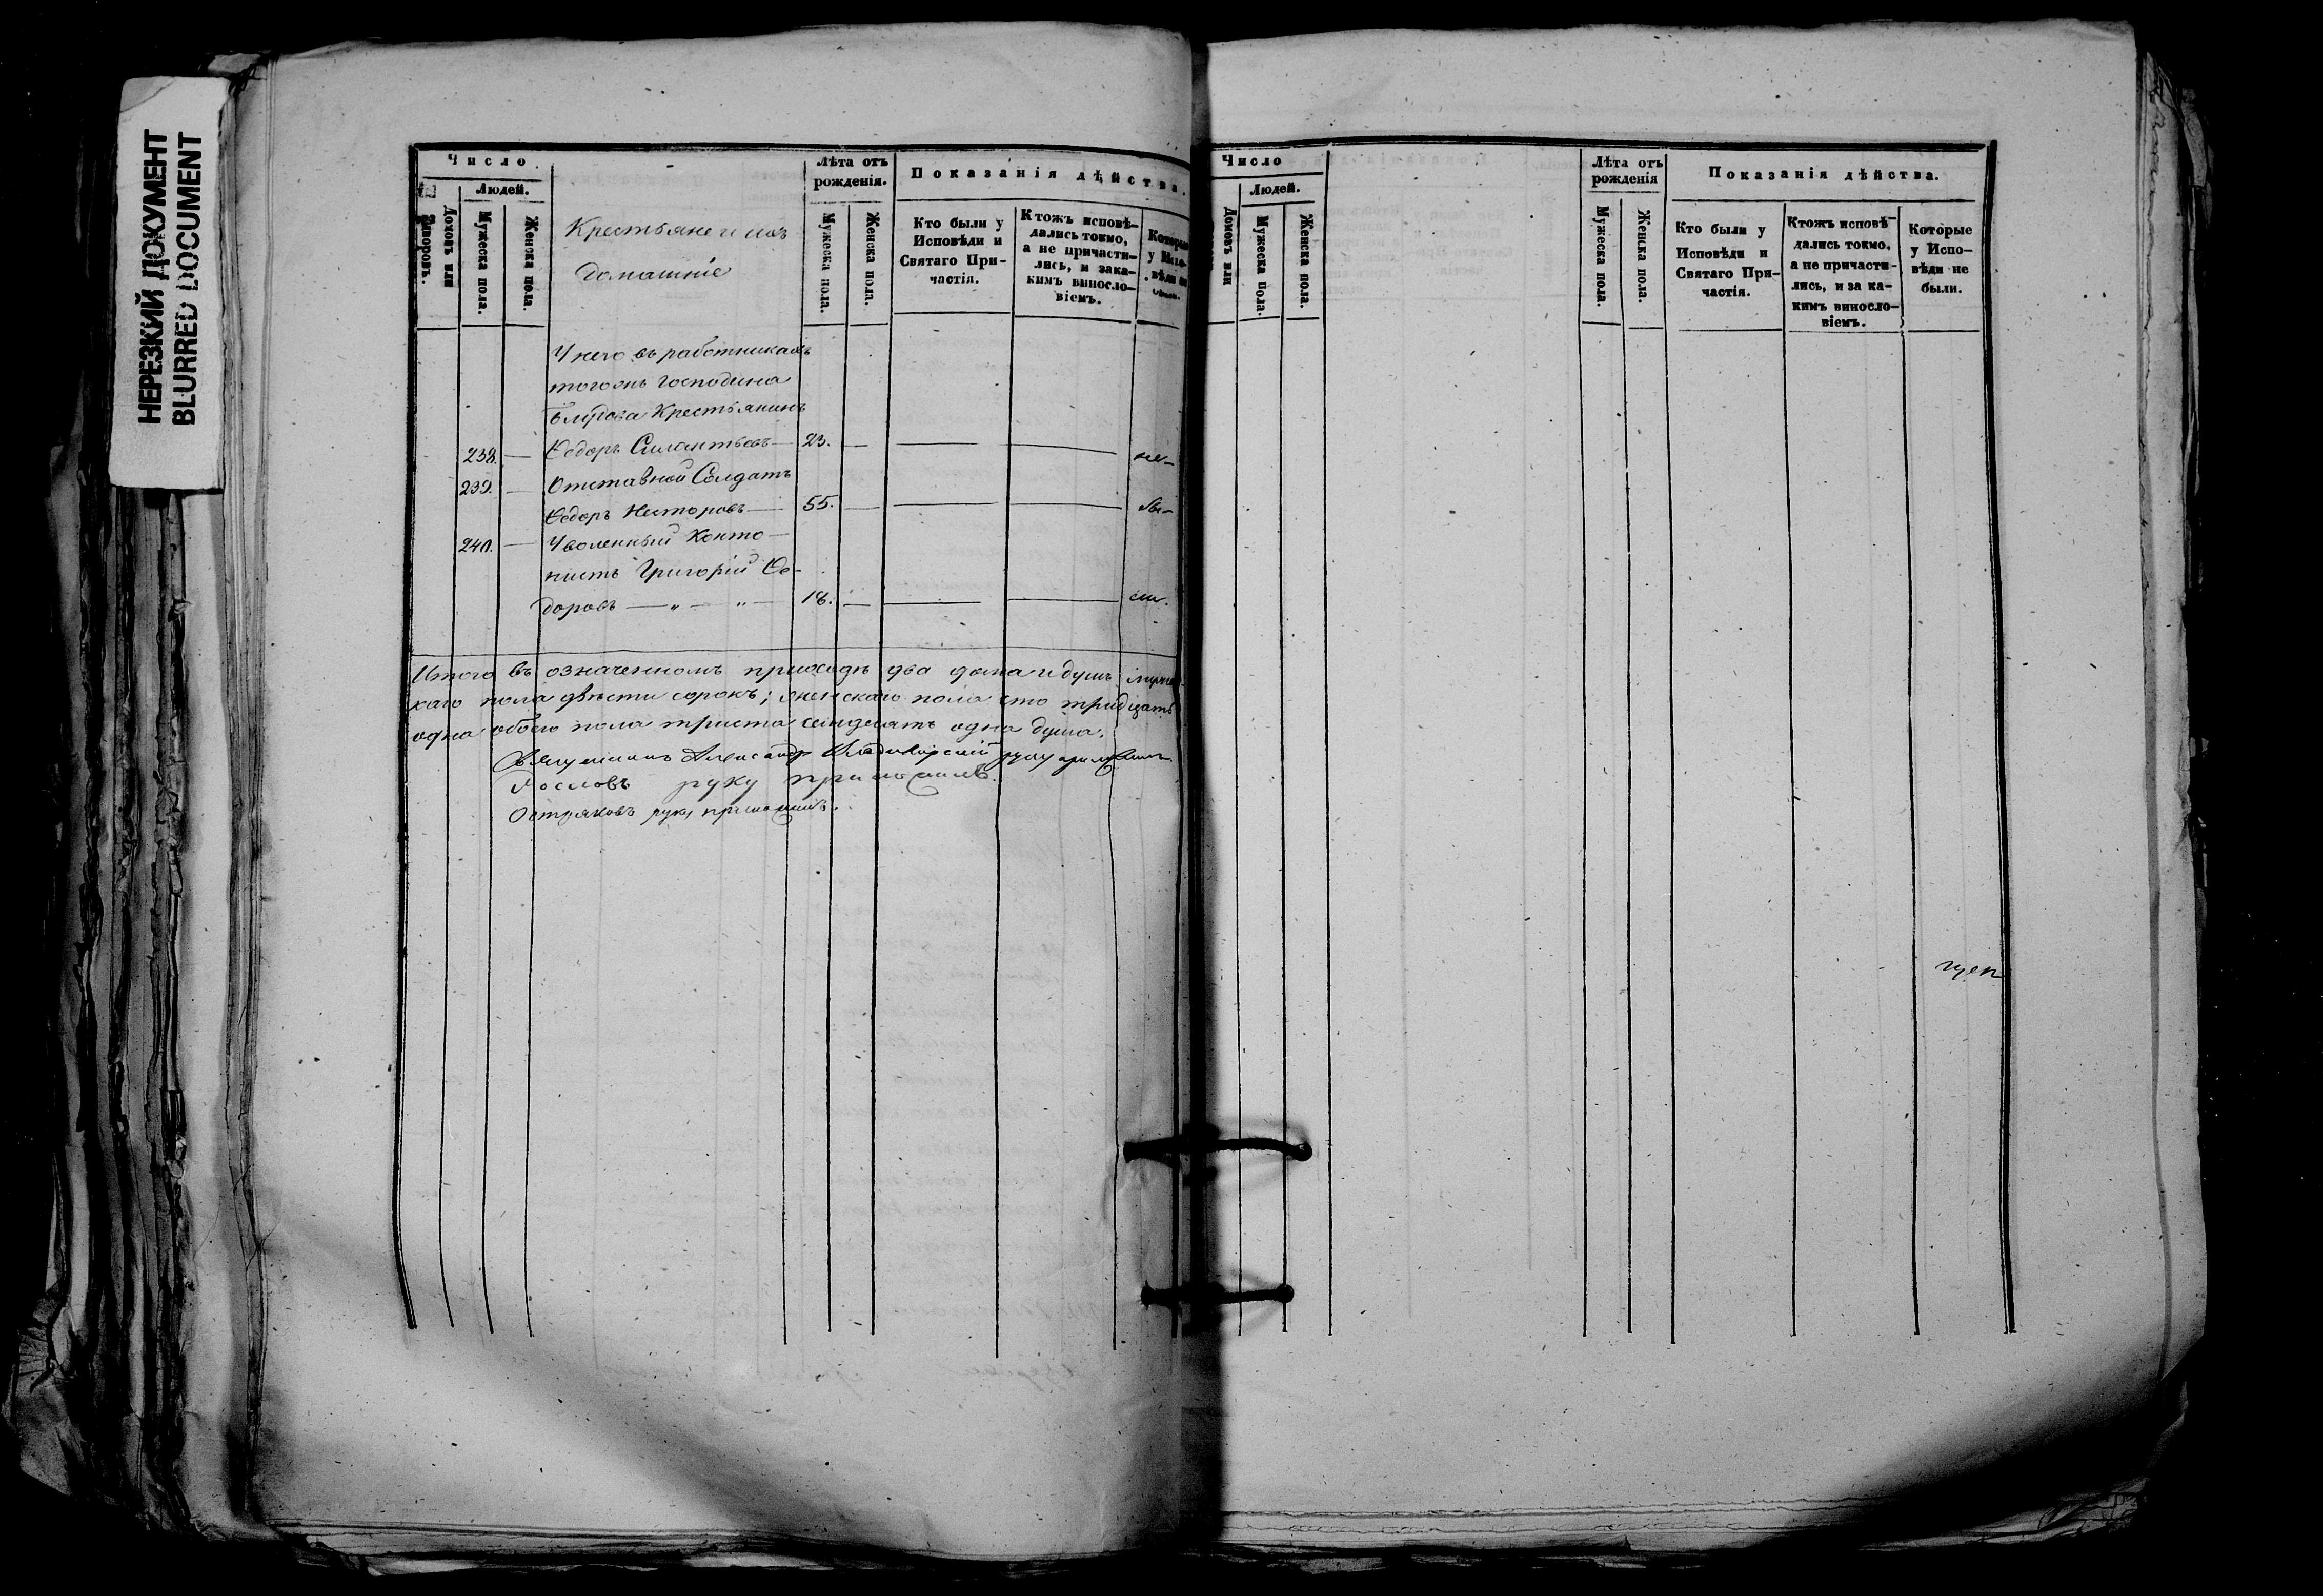 НЕРЕЗКИЙ ДОКУМЕНТ
BLURRED DOCUMENT
Число
Людей.
Домовъ или
Дворовъ.
Мужеска пола.
Женска пола.
Крестьяне и ихъ
домашніе
Лѣта отъ
рожденія.
Мужеска пола.
Женска пола.
Показанія дѣйства.
Кто были у
Исповѣди и
Святаго При-
частія.
Ктожъ исповѣ-
дались токмо,
а не причасти-
лись, и зака-
кимъ винosло-
віемъ.
Которые
у Испо-
вѣди не
были.
У него въ работникахъ
тогожъ господина
Крестьянинъ
238. — Ѳедоръ Силантьевъ — 23. — не-
239. — Отставной Солдатъ
Ѳедоръ Несторовъ — 55. — бы-
240. — Уволенный Канто-
нистъ Григорій Ѳе-
доровъ — „ — „ — 18. — ли.
Итого въ означенномъ приходѣ два дома и душъ мужес-
каго пола двѣсти сорокъ; женскаго пола сто тридцать
одна обоего пола триста семдесятъ одна душа.
Священникъ Александръ руку приложилъ.
руку приложилъ.
Остряковъ руку приложилъ.
Число
Людей.
Домовъ или
Мужеска пола.
Женска пола.
Лѣта отъ
рожденія
Мужеска пола.
Женска пола.
Показанія дѣйства.
Кто были у
Исповѣди и
Святаго При-
частія.
Ктожъ исповѣ-
дались токмо,
а не причасти-
лись, и за ка-
кимъ виносло-
віемъ.
Которые
у Испо-
вѣди не
были.